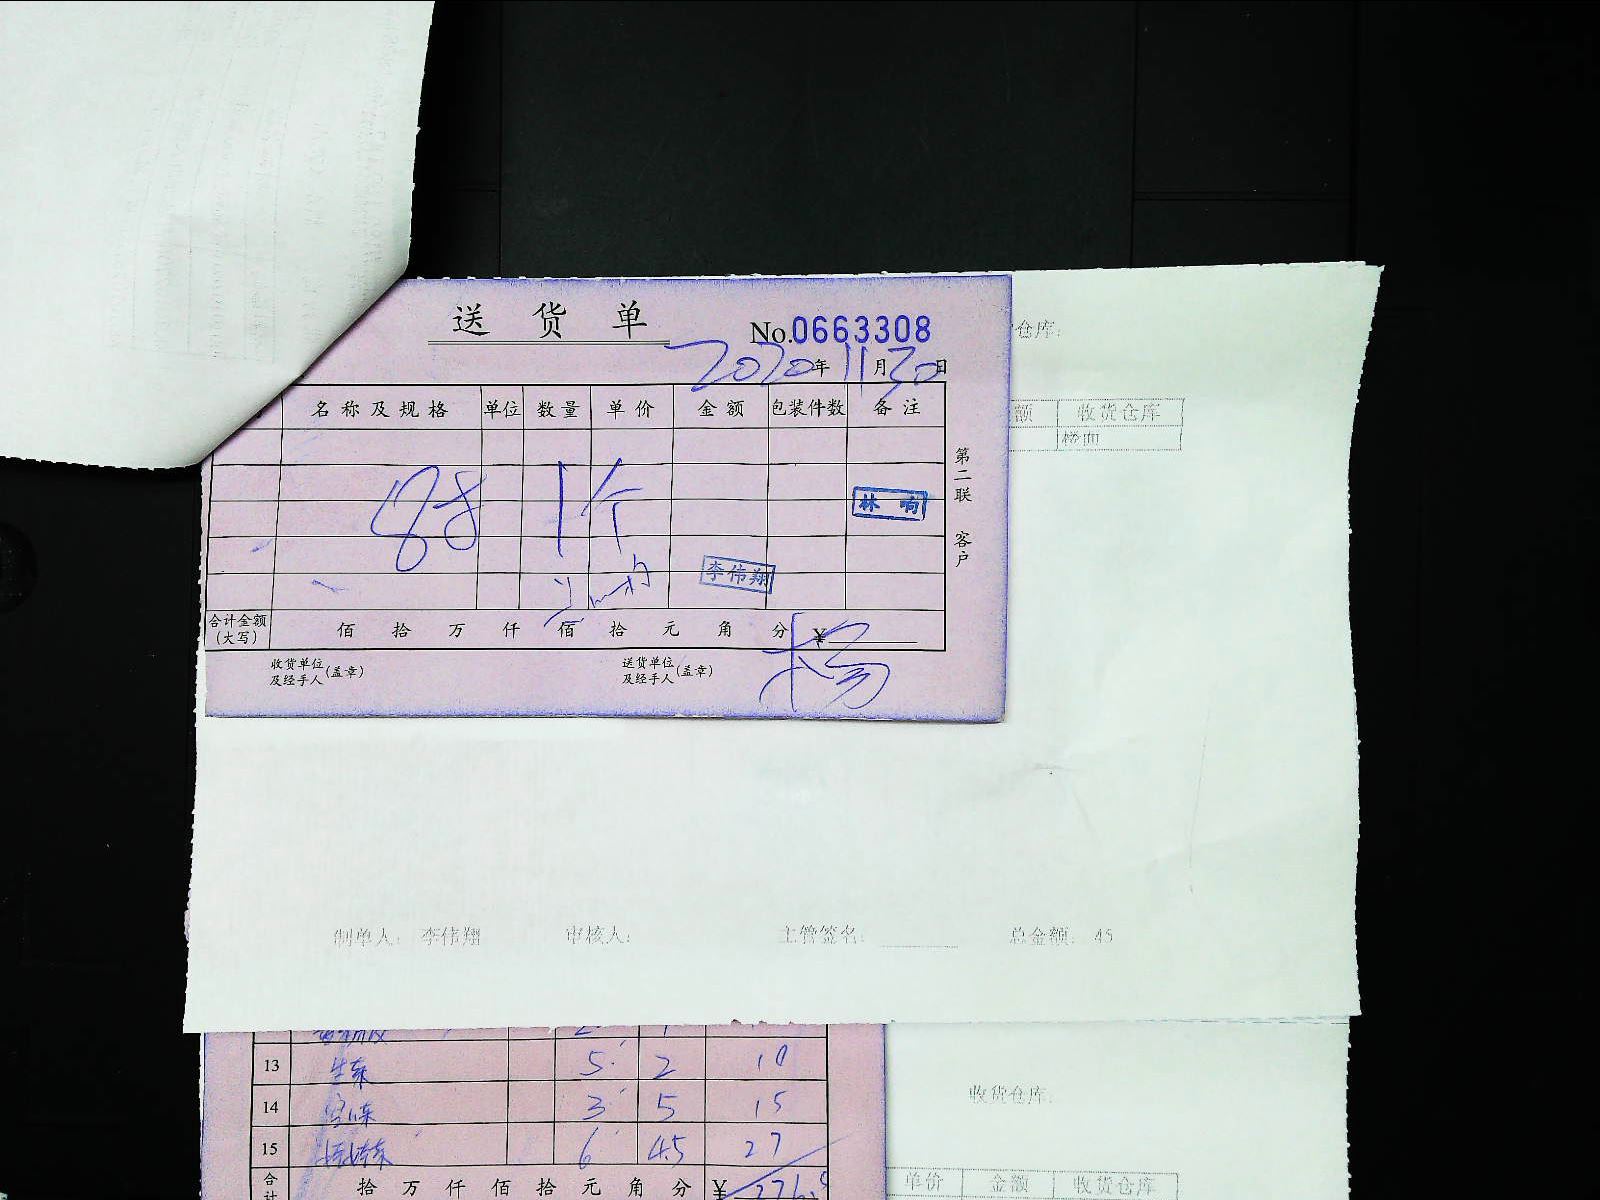 送货单
No.0663308
仓库:
2020年11月30日
名称及规格 单位 数量 单价 金额 包装件数 备注
额 收货仓库
楼面
第二联 客户
1个
林 响
李伟翔
合计金额(大写) 佰 拾 万 仟 佰 拾 元 角 分 ¥
杨
收货单位及经手人(盖章) 送货单位及经手人(盖章)
制单人: 李伟翔 审核人: 主管签名: 总金额: 45
13 5 2 10
14 3 5 15
收货仓库:
15 6 4.5 27
合计 拾 万 仟 佰 拾 元 角 分 ¥ 276.5
单价 金额 收货仓库